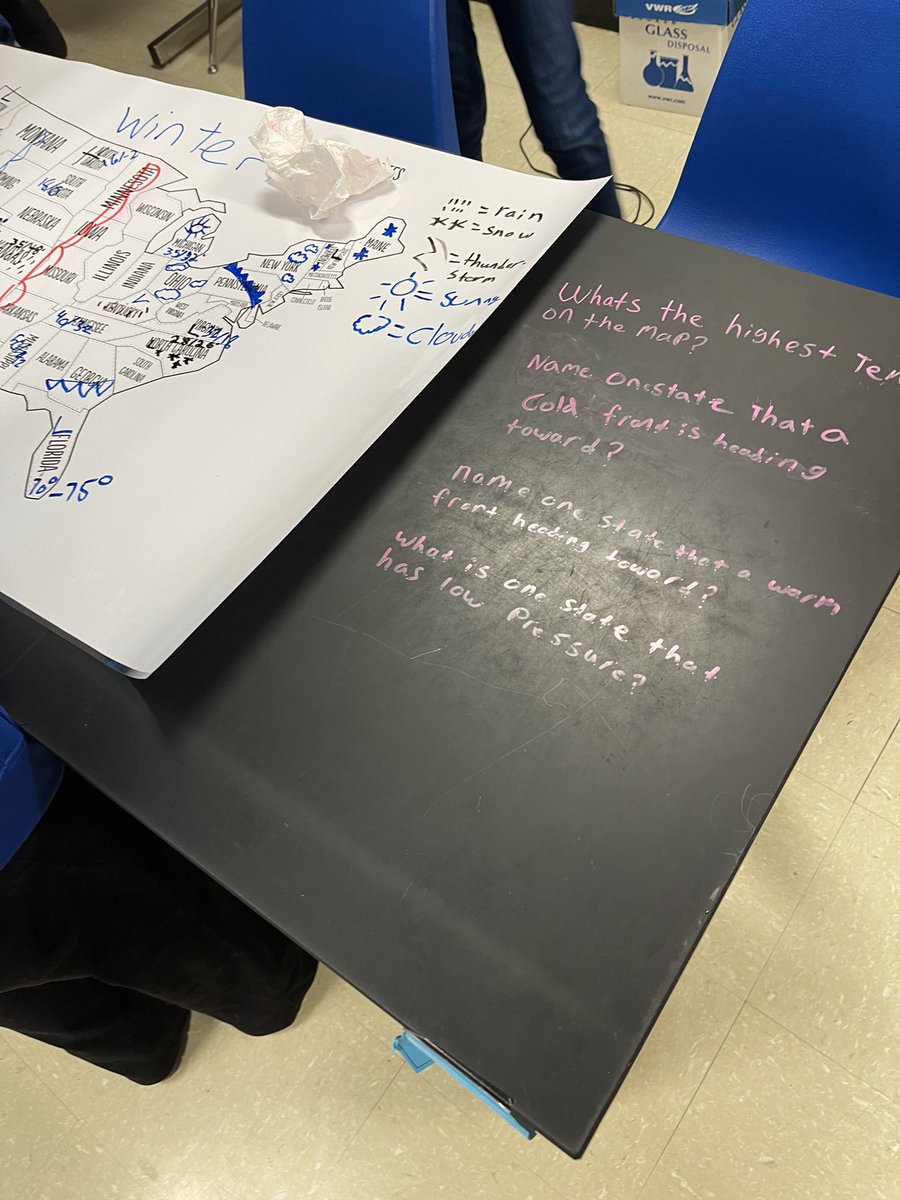 VWR
GLASS
DISPOSAL
www.vwr.com
Winter
MONTANA
NORTH
SOUTH
MINNESOTA
WISCONSIN
NEBRASKA
IOWA
MICHIGAN
ILLINOIS
INDIANA
OHIO
MISSOURI
NEW YORK
MAINE
PENNSYLVANIA
WEST
VIRGINIA
CONNECTICUT
DELAWARE
28/26
NORTH CAROLINA
SOUTH
CAROLINA
ALABAMA
GEORGIA
FLORIDA
70°-75°
= rain
** = snow
= thunder-
storm
= Sunny
= Cloudy
Whats the highest
on the map?
Name one state That a
Cold front is heading
toward?
name one state that a warm
front heading toward?
what is one state that
has low Pressure?